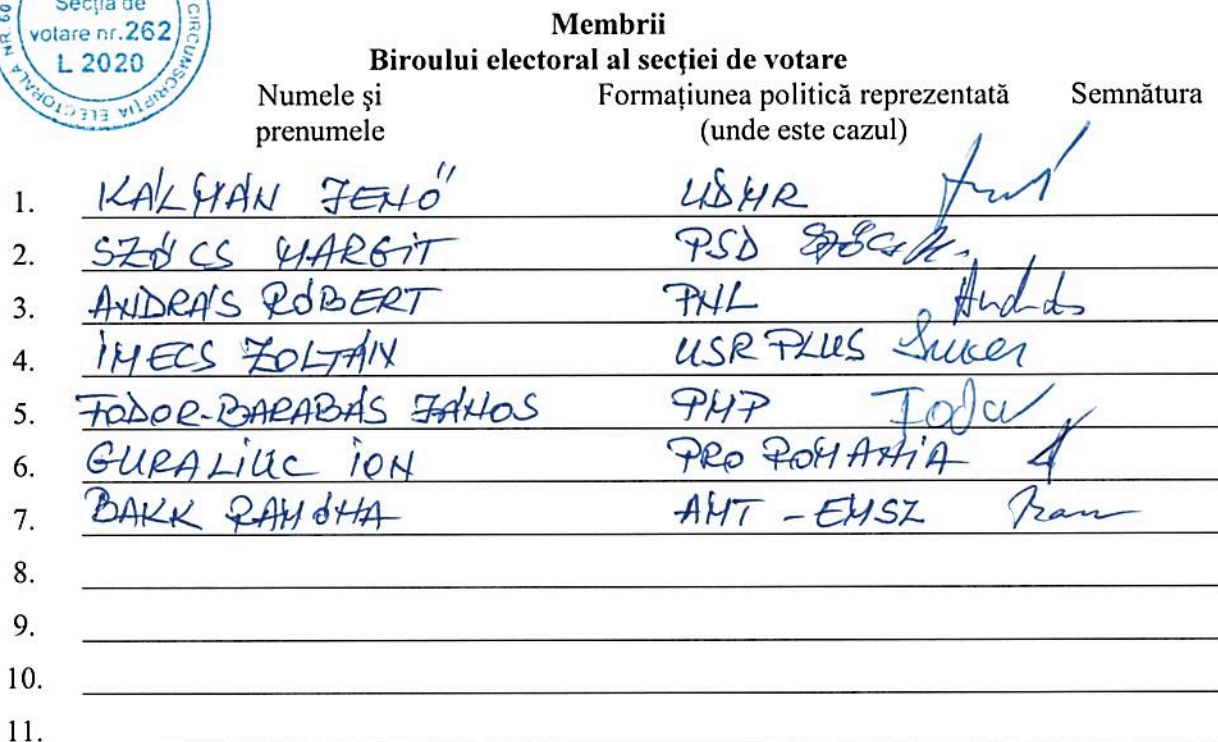 Secția de
votare nr.262
L 2020
CIRCUMSCRIPȚIA ELECTORALĂ NR.60
Membrii
Biroului electoral al secţiei de votare
Numele şi prenumele Formațiunea politică reprezentată (unde este cazul) Semnătura
1. KÁLMÁN JENŐ UDMR
2. SZŐCS MARGIT PSD Szőcs M.
3. ANDRÁS RÓBERT PNL András
4. IMECS ZOLTÁN USR PLUS
5. FODOR-BARABÁS JÁNOS PMP Fodor
6. GURALIUC ION PRO ROMANIA
7. BAKK RAMÓNA AMT - EMSZ
8.
9.
10.
11.